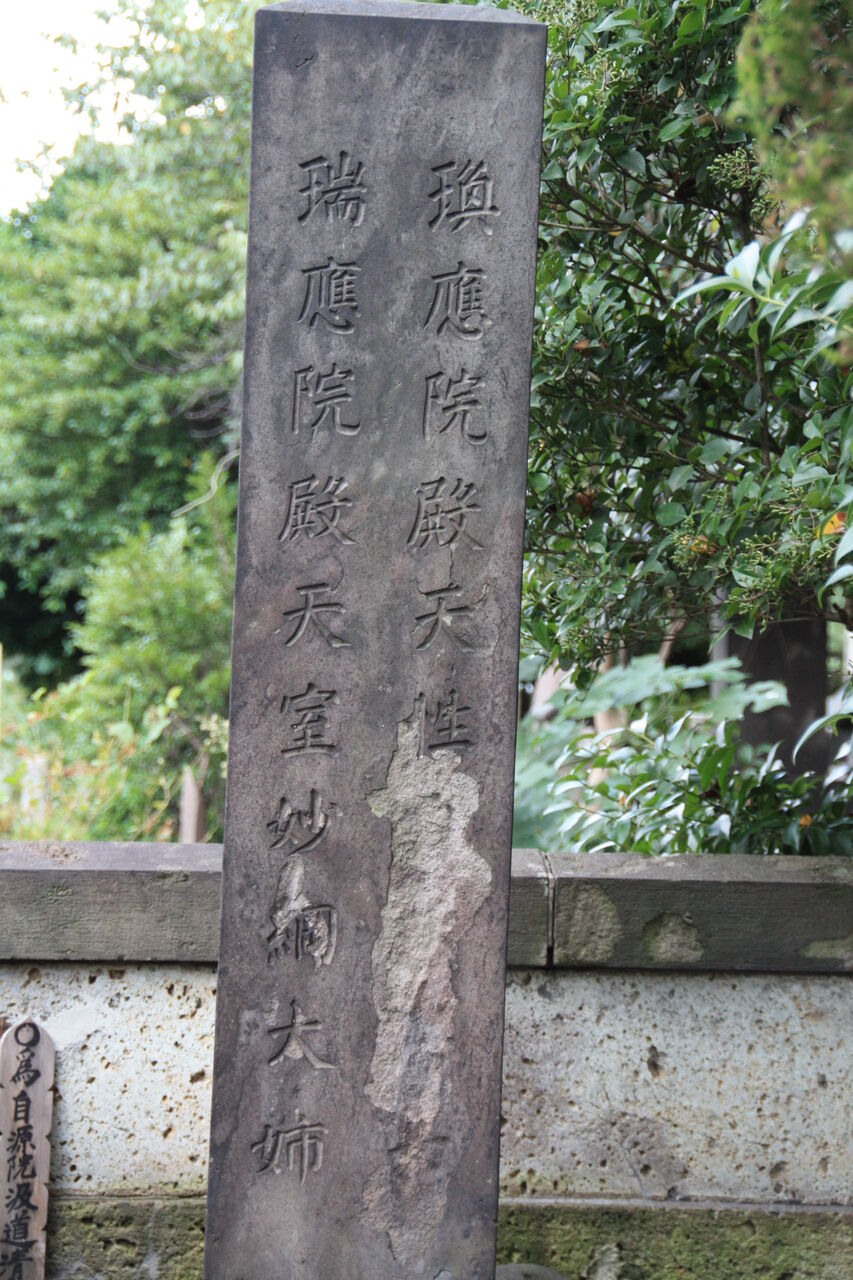 瑍應院殿天性士
瑞應院殿天室妙綱大姉
爲自源院汲道清